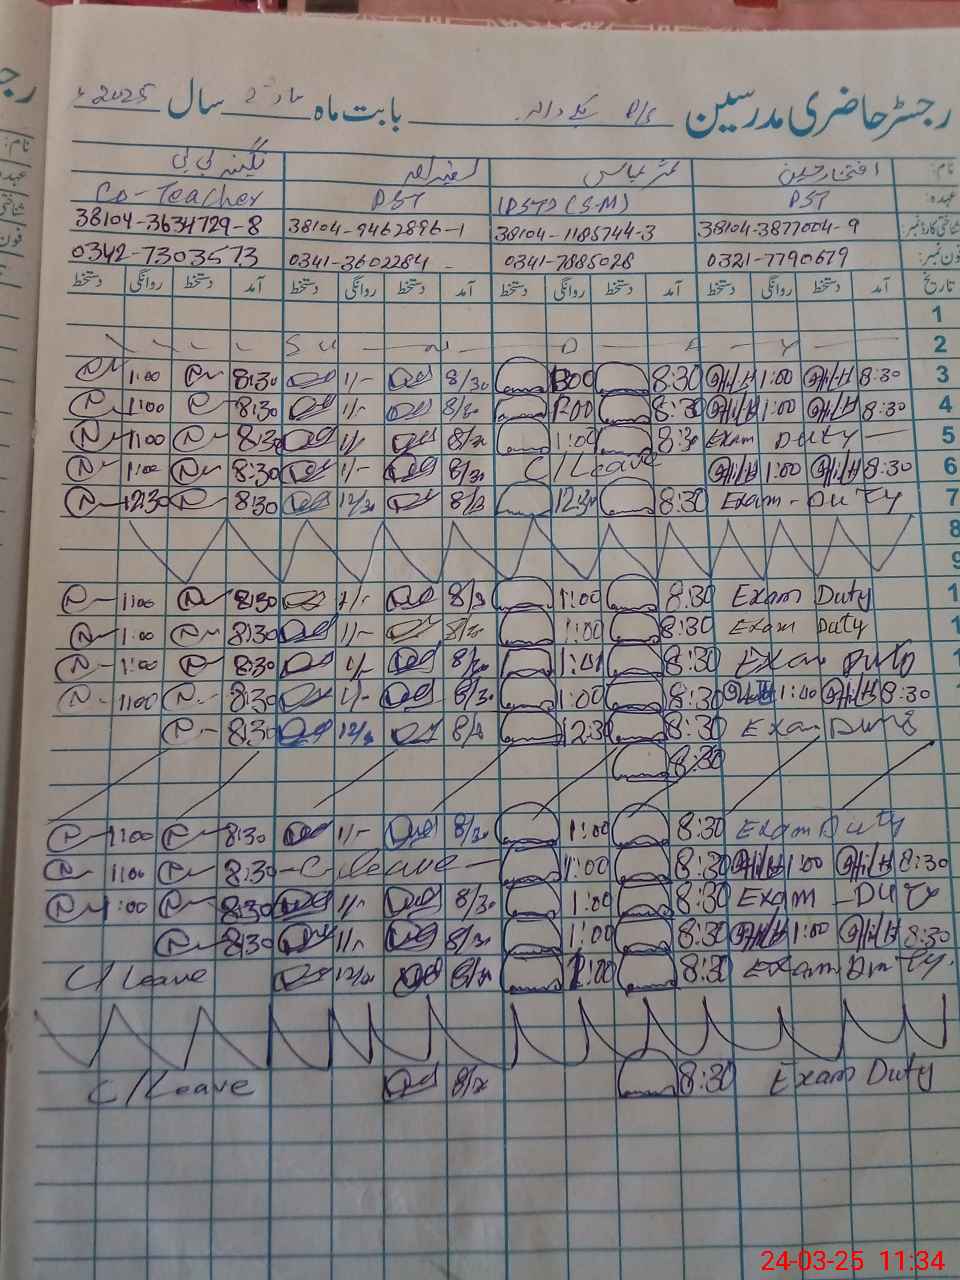 رجسٹر حاضری مدرسین P/S بابت ماہ مارچ سال 2025ء
نام: افتخار حسین
عہدہ: PST PSTJ (S.M) PST Co-Teacher
شناختی کارڈ نمبر: 38104-3877004-9 38104-1185744-3 38104-9462896-1 38104-3634729-8
فون نمبر: 0321-7790679 0341-7885028 0341-3602284 0342-7303573
تاریخ آمد دستخط روانگی دستخط آمد دستخط روانگی دستخط آمد دستخط روانگی دستخط آمد دستخط روانگی دستخط
1
2 S U N D A Y
3 8:30 1:00 8:30 1:00 8/30 1/- 8:30 1:00
4 8:30 1:00 8:30 1:00 8/30 1/- 8:30 1:00
5 Exam Duty 8:30 1:00 8/30 1/- 8:30 1:00
6 8:30 1:00 C/Leave 8/30 1/- 8:30 1:00
7 Exam - Duty 8:30 12:30 8/30 12/30 8:30 12:30
8
9
1 Exam Duty 8:30 1:00 8/30 1/- 8:30 1:00
1 Exam Duty 8:30 1:00 8/30 1/- 8:30 1:00
1 Exam Duty 8:30 1:01 8/30 1/- 8:30 1:00
1 8:30 1:00 8:30 1:00 8/30 1/- 8:30 1:00
Exam Duty 8:30 12:30 8/30 12/30 8:30
8:30
Exam Duty 8:30 1:00 8/30 1/- 8:30 1:00
8:30 1:00 8:30 1:00 C leave 8:30 1:00
Exam - Duty 8:30 1:00 8/30 1/- 8:30 1:00
8:30 1:00 8:30 1:00 8/30 1/- 8:30
Exam Duty 8:30 1:00 8/30 12/30 C/Leave
Exam Duty 8:30 8/30 C/Leave
24-03-25 11:34